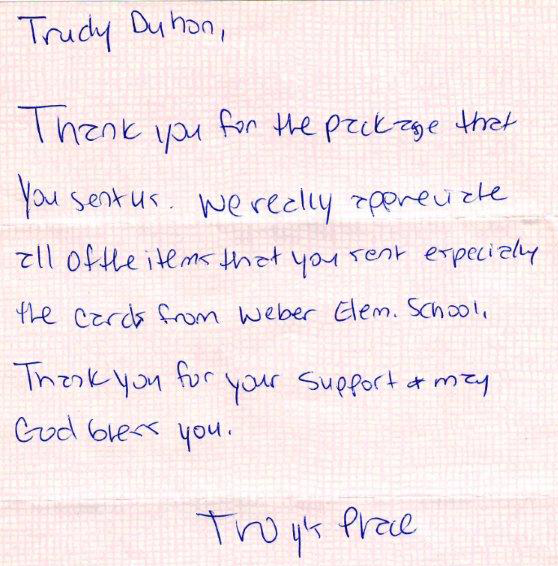 Trudy Duhon,
Thank you for the package that
you sent us. We really appreciate
all of the items that you sent especially
the cards from Weber Elem. School.
Thank you for your support & may
God bless you.